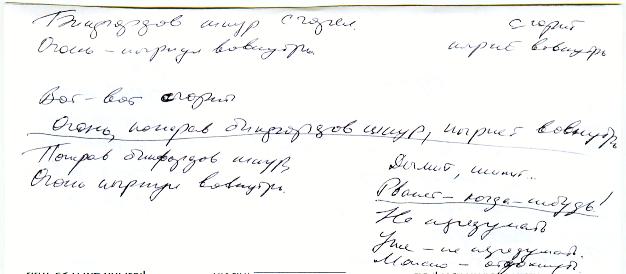 Бикфордов шнур сгорел.
Огонь – нырнул вовнутрь.
сгорит
нырнёт вовнутрь
Вот-вот сгорит
Огонь, пожрав бикфордов шнур, нырнёт вовнутрь
Пожрав бикфордов шнур,
Огонь нырнул вовнутрь.
Дымит, шипит..
Рванёт – когда-нибудь!
Не
Уже – не
Можно –